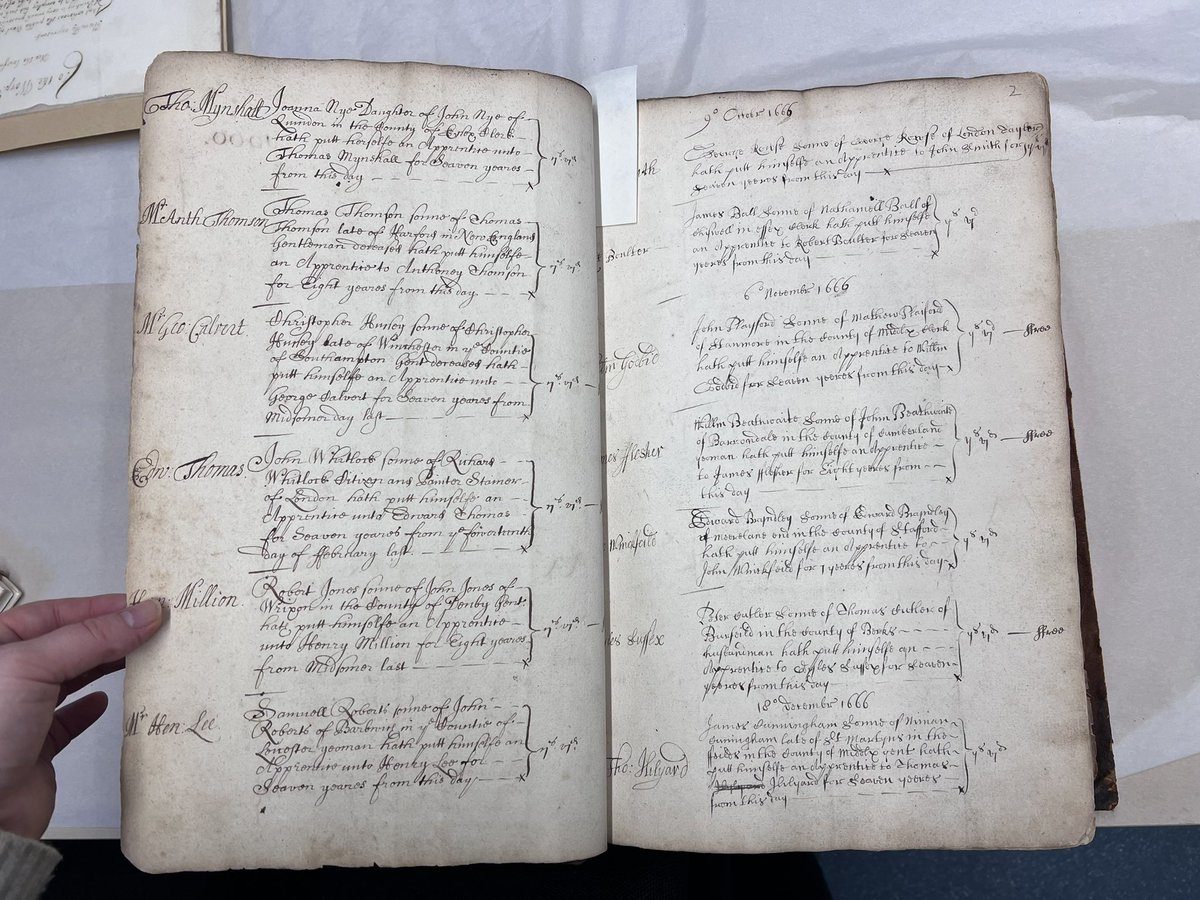 Tho: Mynshall Joanna Nye Daughter of John Nye of
Quindon in the County of Essex Clerk
hath putt herselfe an Apprentice unto
Thomas Mynshall for Seaven yeares
from this day
Mr Anth Thomson Thomas Thomson sonne of Thomas
Thomson late of Harford in New England
Gentleman deceased hath putt himselfe
an Apprentice to Anthoney Thomson
for Eight yeares from this day
Mr Geo: Calvert Christopher Hussey sonne of Christopher
Hussey late of Winchester in ye Countie
of Southampton Gent deceased hath
putt himselfe an Apprentice unto
George Calvert for Seaven yeares from
Midsomer day last
Edw: Thomas John Whatlock sonne of Richard
Whatlock Citizen and Painter Stainer
of London hath putt himselfe an
Apprentice unto Edward Thomas
for Seaven yeares from ye fowerteenth
day of ffebruary last
Hen: Million Robert Jones sonne of John Jones of
Wrixon in the County of Denby Gent:
hath putt himselfe an Apprentice
unto Henry Million for Eight yeares
from Midsomer last
Mr Hen: Lee Samuell Roberts sonne of John
Roberts of in ye Countie of
Leicester yeoman hath putt himselfe an
Apprentice unto Henry Lee for
Seaven yeares from this day
2
9º October 1666
George Sonne of George of London
hath putt himselfe an Apprentice to John Smith for
Seaven yeeres from this day
James Ball Sonne of Nathaniell Ball of
in Essex Clerk hath putt himselfe
Boulter an Apprentice to Robert Boulter for Seaven
yeeres from this day
6º November 1666
John Playford Sonne of Mathew Playford
of Stanmore in the County of Middx Clerk ffree
hath putt himselfe an Apprentice to Willm
Godbid for Seaven yeeres from this day
Willm Beathwaite Sonne of John Beathwaite
of Borrondale in the County of Cumberland ffree
yeoman hath putt himselfe an Apprentice
fflesher to James fflesher for Eight yeeres from
this day
Edward Brindley Sonne of Edward Brindley
of in the County of Stafford
hath putt himselfe an Apprentice to
John for 7 yeeres from this day
Peter Cutler Sonne of Thomas Cutler of
in the County of Berks
Sussex husbandman hath putt himselfe an ffree
Apprentice to Sussex for Seaven
yeeres from this day
18º December 1666
James Cunningham Sonne of Ninian
Cunningham late of St Martyns in the
feilds in the County of Middx gent hath
Tho: Hilyard putt himselfe an Apprentice to Thomas
Hilyard for Seaven yeeres
from this day